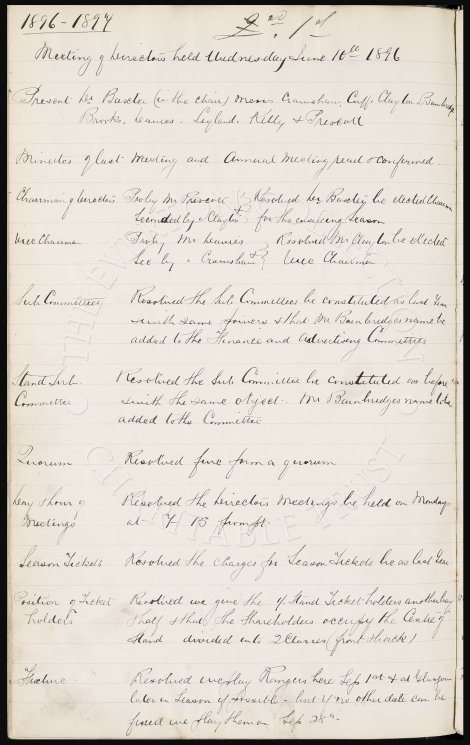 1896-1897
2nd. 1st
Meeting of Directors held Wednesday June 10th 1896
Present Dr Baxter (in the chair) Messrs Cranshaw, Cuff, Clayton, Bainbridge
Brooks, Leyland, Kelly & Prescott
Minutes of last Meeting and Annual Meeting read & confirmed.
Chairman of Directors Propby Mr Prescott Resolved Dr Baxter be elected Chairman
Seconded by " Clayton for the ensuing Season
Vice Chairman Propby Mr Resolved Mr Clayton be elected
Sec by " Cranshaw Vice Chairman
Sub Committees Resolved the Sub Committees be constituted as last Year
with same powers & that Mr Bainbridges name be
added to the Finance and Advertising Committees
Stand Sub Resolved the Sub Committee be constituted as before
Committee with the same object. Mr Bainbridges name to be
added to the Committee
Quorum Resolved five form a quorum
Day & hour of Resolved the Directors Meetings be held on Mondays
Meetings at 7 15 prompt.
Season Tickets Resolved the charges for Season Tickets be as last Year
Position of Ticket Resolved we give the Stand Ticket holders another bay
holders & that the Shareholders occupy the Centre of
Stand divided into 2 Classes (front & back)
Fixture Resolved we play Rangers here Sep 1st & at Glasgow
later in Season if possible - but if no other date can be
fixed we play them on Sep 28th.
THE EVERTON COLLECTION
CHARITABLE TRUST